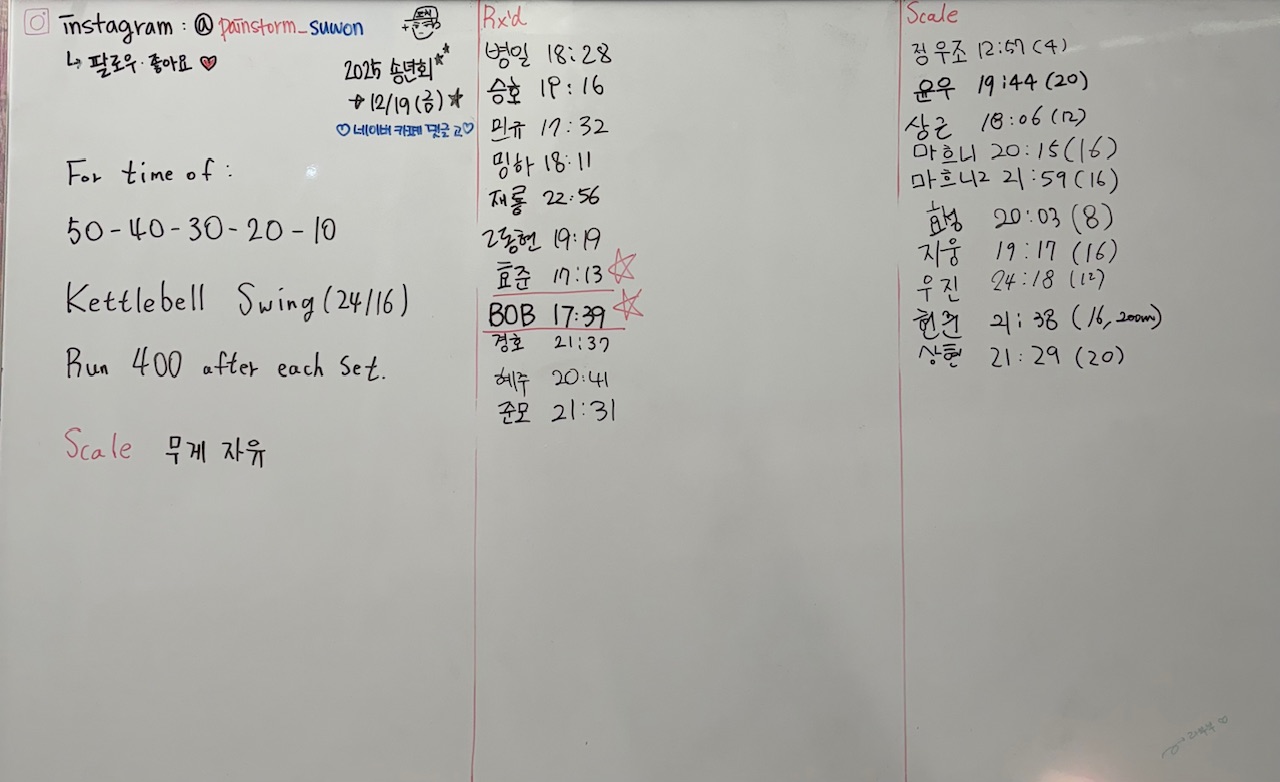 instagram : @painstorm_suwon
↳ 팔로우·좋아요 ♥
2025 송년회
→ 12/19 (금) ★
♡ 네이버 카페 댓글 고 ♡
For time of :
50 - 40 - 30 - 20 - 10
Kettlebell Swing (24/16)
Run 400 after each set.
Scale 무게 자유
Rx'd
병일 18:28
승호 19:16
민규 17:32
밍하 18:11
재룡 22:56
고동현 19:19
효준 17:13 ☆
BOB 17:39 ☆
경호 21:37
혜주 20:41
준모 21:31
Scale
정우조 12:57 (4)
윤우 19:44 (20)
상근 18:06 (12)
마흐니 20:15 (16)
마흐니2 21:59 (16)
효성 20:03 (8)
지웅 19:17 (16)
우진 24:18 (12)
21:38 (16, 200m)
상현 21:29 (20)